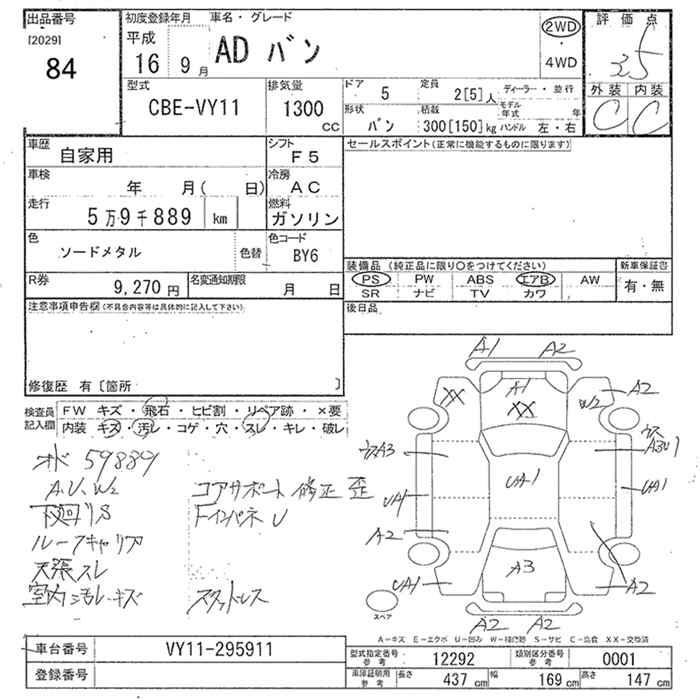 出品番号
[2029]
84
初度登録年月
平成
16 9月
車名・グレード
AD バン
2WD
・
4WD
評価点
3.5
外装 内装
C C
型式
CBE-VY11
排気量
1300
cc
ドア
5
定員
2[5]人
ディーラー・並行
形状
バン
積載
300[150]kg
モデル年式 年
ハンドル 左・右
車歴
自家用
シフト
F5
車検
年 月( 日)
冷房
AC
走行
5万9千889 km
燃料
ガソリン
色
ソードメタル
色替
色コード
BY6
R券
9,270円
名変通知期限
月 日
セールスポイント(正常に機能するものに限ります)
装備品 (純正品に限り○をつけてください)
PS PW ABS エアB AW
SR ナビ TV カワ
新車保証書
有・無
後日品
注意事項申告欄(不具合内容等は具体的に記入して下さい)
修復歴 有〔箇所 〕
検査員記入欄
FW キズ・飛石・ヒビ割・リペア跡・×要
内装 キズ・汚レ・コゲ・穴・スレ・キレ・破レ
オド 59889
A.U.W2
下回りS
ルーフキャリア
天張スレ
室内汚レキズ
コアサポート修正歪
Fインパネ U
スタッドレス
A1 A2
XX A1 XX W2 A2
ウスA3
UA1 UA1 UA1
A2
UA1 A3 A2
A2 A2
スペア
A-キズ E-エクボ U-凹み W-補修跡 S-サビ C-腐食 XX-交換済
車台番号
VY11-295911
登録番号
型式指定番号
参考
12292
類別区分番号
参考
0001
車庫証明用
参考
長さ 437 cm
幅 169 cm
高さ 147 cm